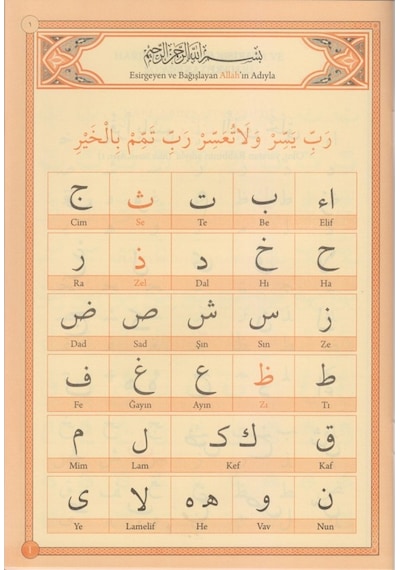 ١
بِسْمِ اللّٰهِ الرَّحْمٰنِ الرَّحِيمِ
Esirgeyen ve Bağışlayan Allah'ın Adıyla
رَبِّ يَسِّرْ وَلَا تُعَسِّرْ رَبِّ تَمِّمْ بِالْخَيْرِ
اء ب ت ث ج
Elif Be Te Se Cim
ح خ د ذ ر
Ha Hı Dal Zel Ra
ز س ش ص ض
Ze Sin Şın Sad Dad
ط ظ ع غ ف
Tı Zı Ayın Ğayın Fe
ق ك ک ل م
Kaf Kef Lam Mim
ن و ه ه لا ی
Nun Vav He Lamelif Ye
1